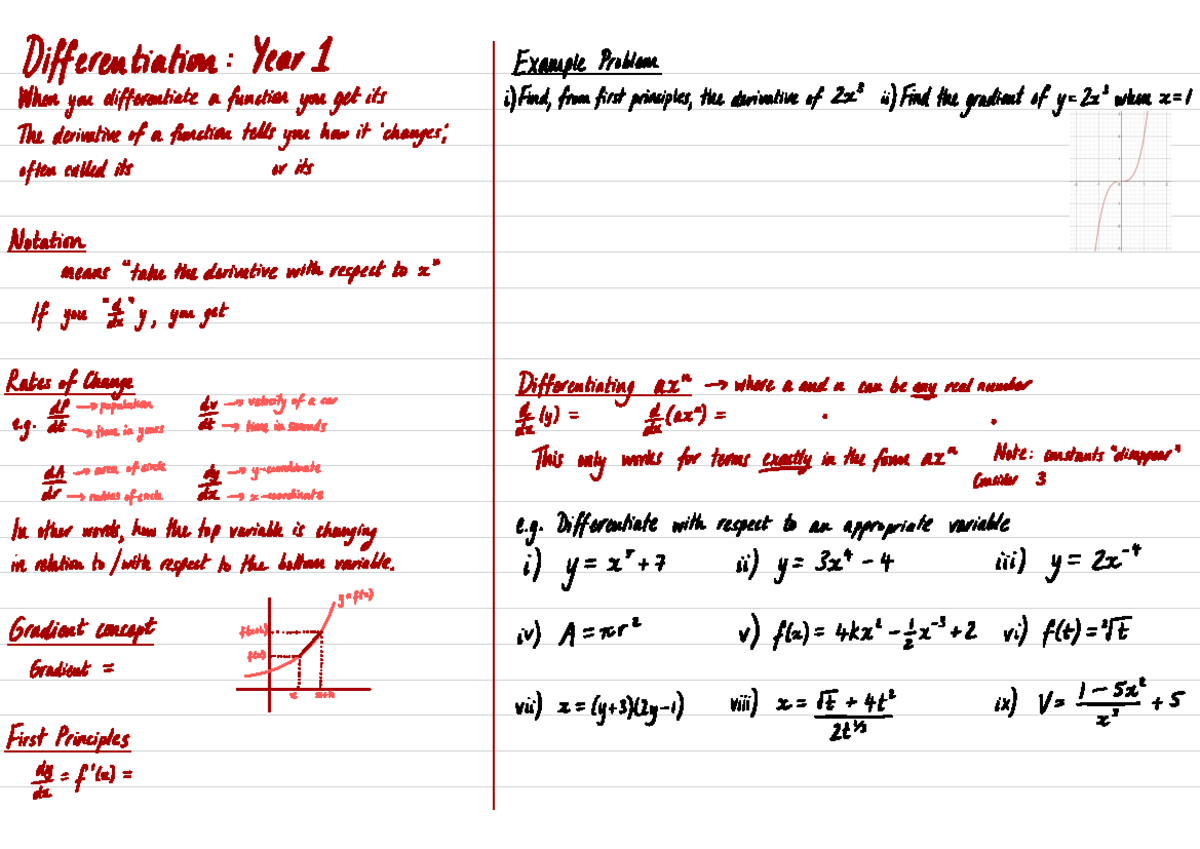 Differentiation: Year 1
When you differentiate a function you get its
The derivative of a function tells you how it 'changes',
often called its or its
Notation
means "take the derivative with respect to x"
If you "d/dx" y, you get
Rates of Change
e.g. dP/dt → population → time in years
dv/dt → velocity of a car → time in seconds
dA/dr → area of circle → radius of circle
dy/dx → y-coordinate → x-coordinate
In other words, how the top variable is changing
in relation to / with respect to the bottom variable.
Gradient concept
Gradient =
y=f(x)
f(x+h)
f(x)
x x+h
First Principles
dy/dx = f'(x) =
Example Problem
i) Find, from first principles, the derivative of 2x³ ii) Find the gradient of y=2x³ when x=1
Differentiating axⁿ → where a and n can be any real number
d/dx (y) = d/dx (axⁿ) =
This only works for terms exactly in the form axⁿ
Note: constants "disappear"
Consider 3
e.g. Differentiate with respect to an appropriate variable
i) y = x⁵ + 7 ii) y = 3x⁴ - 4 iii) y = 2x⁻⁴
iv) A = πr² v) f(x) = 4kx² - ½x⁻³ + 2 vi) f(t) = ²√t
vii) x = (y+3)(2y-1) viii) x = (√t + 4t²)/(2t^(1/3)) ix) V = (1 - 5x²)/x³ + 5